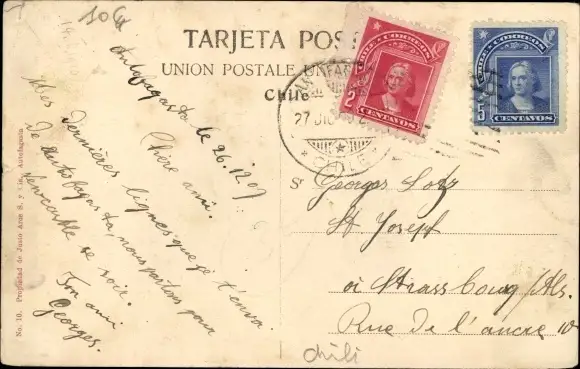 10 Ct
TARJETA POS
UNION POSTALE UN
Chile
CHILE CORREOS
2
CENTAVOS
CHILE CORREOS
5
CENTAVOS
ANTOFAGA
27 DIC
CHILE
Antofagasta le 26.12.07
Chère ami.
Mes dernières lignes que je t'envoi
de Antofagasta, nous partons pour
te voir.
Ton ami
Georges.
Sr Georges Lotz
St Joseph
à Strassbourg/Als.
Rue de l'ancre 10
chili
No. 10. Propiedad de Justo Arce S. y Cia., Antofagasta